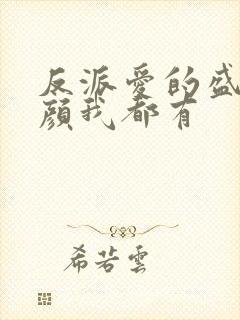 反派愛的盛
顏我都有
希若雲